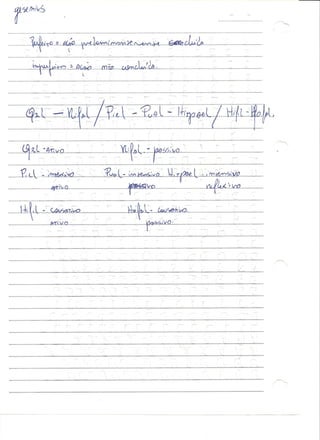 Perfeito = ação predominantemente concluída
imperfeito = ação não concluída.
Qal - Nifal / Piel - Pual - Hitpael / Hifil - Hofal.
Qal - Ativo Nifal. - passivo
Piel - intensivo Pual - intensivo Hitpael . . intensivo
ativo passivo reflexivo
Hifil - causativo Hofal - causativo
ativo passivo.